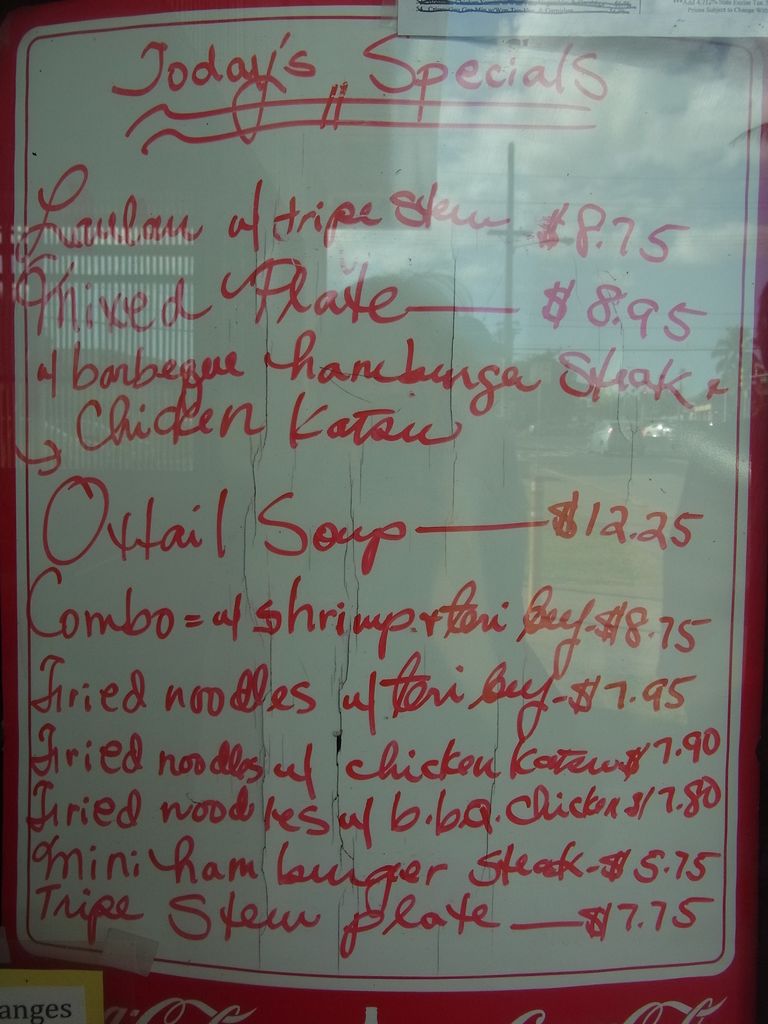 Today's Specials
Laulau w/ tripe stew $8.75
Mixed Plate — $8.95
w/ barbeque hamburger Steak +
Chicken Katsu
Oxtail Soup — $12.25
Combo = w/ shrimp + teri beef - $8.75
Fried noodles w/ teri beef - $7.95
Fried noodles w/ chicken Katsu $7.90
Fried noodles w/ b.b.q. chicken $7.80
Mini hamburger steak - $5.75
Tripe Stew plate — $7.75
anges